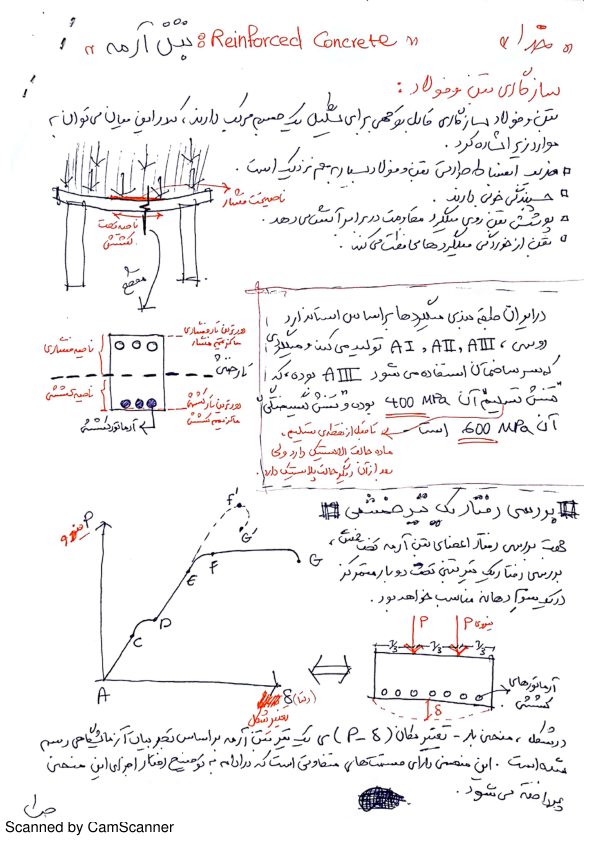 « بتن آرمه : Reinforced Concrete »
« خدا »
سازگاری بتن و فولاد :
بتن و فولاد سازگاری قابل توجهی برای تشکیل یک جسم مرکب دارند، که در این میان می‌توان به
موارد زیر اشاره کرد.
ضریب انبساط حرارتی بتن و فولاد بسیار به هم نزدیک است.
چسبندگی خوبی دارند.
پوشش بتن روی میلگرد مقاومت در برابر آتش می‌دهد.
بتن از خوردگی میلگردهای محافظت می‌کند.
ناحیه تحت فشار
ناحیه تحت
کششی
مقطع
دورترین تار فشاری
ماکزیمم فشار
ناحیه فشاری
تار خنثی
ناحیه کششی
دورترین تار کششی
ماکزیمم کشش
آرماتور کششی
در ایران طبقه بندی میلگردها بر اساس استاندارد
روسی، AI, AII, AIII تولید می‌کنند و میلگردی
که در ساختمان استفاده می‌شود AIII بوده، که
"تنش تسلیم" آن 400 MPa بوده و "تنش گسیختگی"
آن 600 MPa است
تا قبل از نقطه‌ی تسلیم،
ماده حالت الاستیک دارد ولی
بعد از آن دیگر حالت پلاستیک دارد.
بررسی رفتار یک تیر خمشی
جهت بررسی رفتار اعضای بتن آرمه تحت خمش،
بررسی رفتار یک تیر بتنی تحت دو بار متمرکز
در یک سوم دهانه مناسب خواهد بود.
نیرو P
A C D E F G F' G'
δ (دلتا)
تغییر شکل
P P نیروی
L/3 L/3 L/3
آرماتورهای
کششی
δ
در شکل، منحنی بار - تغییر مکان (P-δ) ی یک تیر بتن آرمه بر اساس تجربیات آزمایشگاهی رسم
شده است. این منحنی دارای قسمت‌های متفاوتی است که در ادامه به توضیح رفتار اجزای این منحنی
پرداخته می‌شود.
ص ۱
Scanned by CamScanner